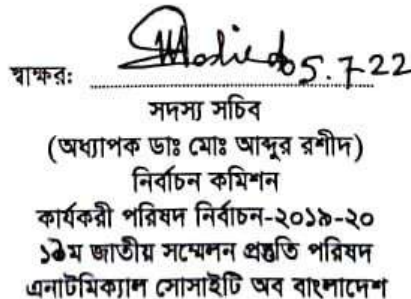 স্বাক্ষর: 05.7.22
সদস্য সচিব
(অধ্যাপক ডাঃ মোঃ আব্দুর রশীদ)
নির্বাচন কমিশন
কার্যকরী পরিষদ নির্বাচন-২০১৯-২০
জাতীয় সম্মেলন প্রস্তুতি পরিষদ
এনাটমিক্যাল সোসাইটি অব বাংলাদেশ